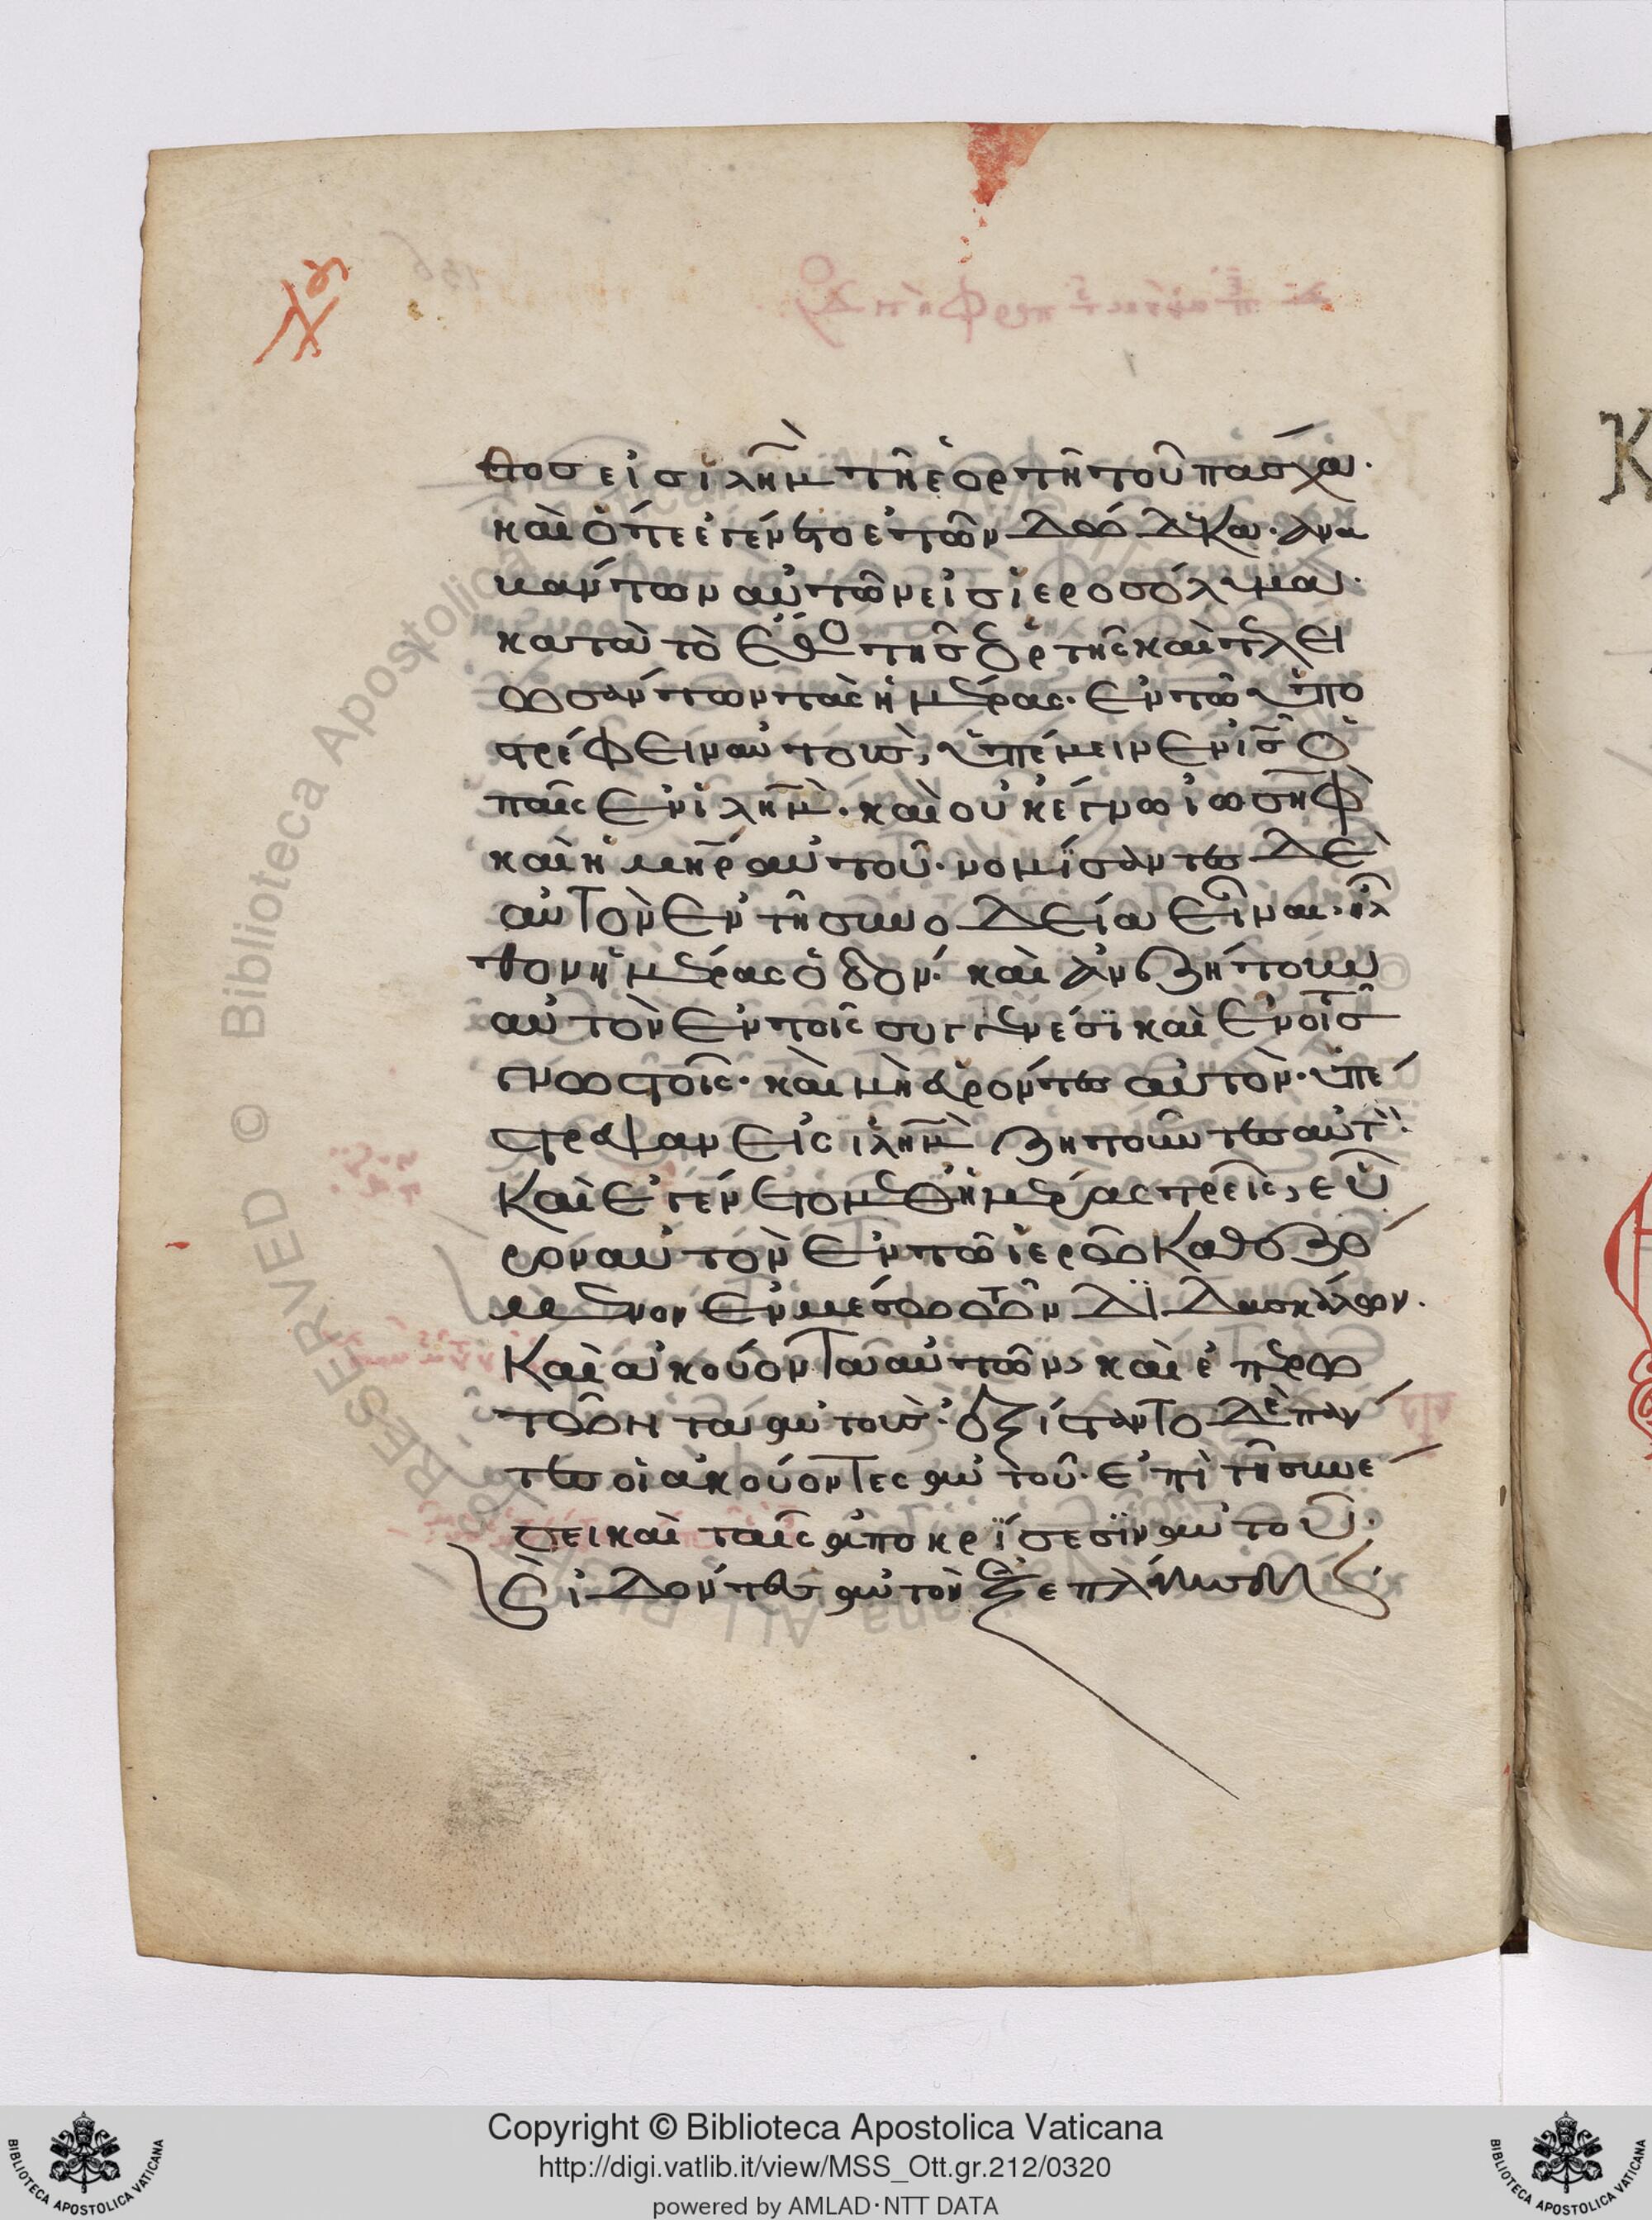 τος εἰς ἱλῆμ τῆ ἑορτῆ τοῦ πάσχα·
καὶ ὅτε ἐγένετο ἐτῶν δώδεκα· ἀνα
βάντων αὐτῶν εἰς ἱεροσόλυμα·
κατὰ τὸ ἔθο τῆς ἑορτῆς καὶ τελει
ωσάντων τὰς ἡμέρας· ἐν τῶ ὑπο
στρέφειν αὐτοὺς, ὑπέμεινεν ἰς ὁ
παῖς ἐν ἱλῆμ· καὶ οὐκ ἔγνω ἰωσὴφ
καὶ ἡ μηρ αὐτοῦ· νομίσαντες δὲ
αὐτὸν ἐν τῆ συνοδεία εἶναι· ἦλ
θον ἡμέρας ὁδόν· καὶ ἀνεζήτουν
αὐτὸν ἐν τοῖς συγγενέσϊ καὶ ἐν τοῖς
γνωστοῖς· καὶ μὴ εὑρόντες αὐτὸν· ὑπέ
στρεψαν εἰς ἱλῆμ ζητοῦντες αὐτ·
Καὶ ἐγένετο μεθ ἡμέρας τρεῖς, εὗ
ρον αὐτὸν ἐν τῶ ἱερῶ καθεζό
μενον ἐν μέσω τῶν διδασκάλων·
Καὶ ἀκούοντα αὐτῶν, καὶ ἐπερω
τῶντα αὐτούς· ἐξίσταντο δὲ πάν
τες οἱ ἀκούοντες αὐτοῦ· ἐπὶ τῆ συνέ
σει καὶ ταῖς ἀποκρϊσεσϊν αὐτοῦ·
Καὶ ἰδόντες αὐτὸν ἐξεπλάγησαν·
Copyright © Biblioteca Apostolica Vaticana
http://digi.vatlib.it/view/MSS_Ott.gr.212/0320
powered by AMLAD·NTT DATA